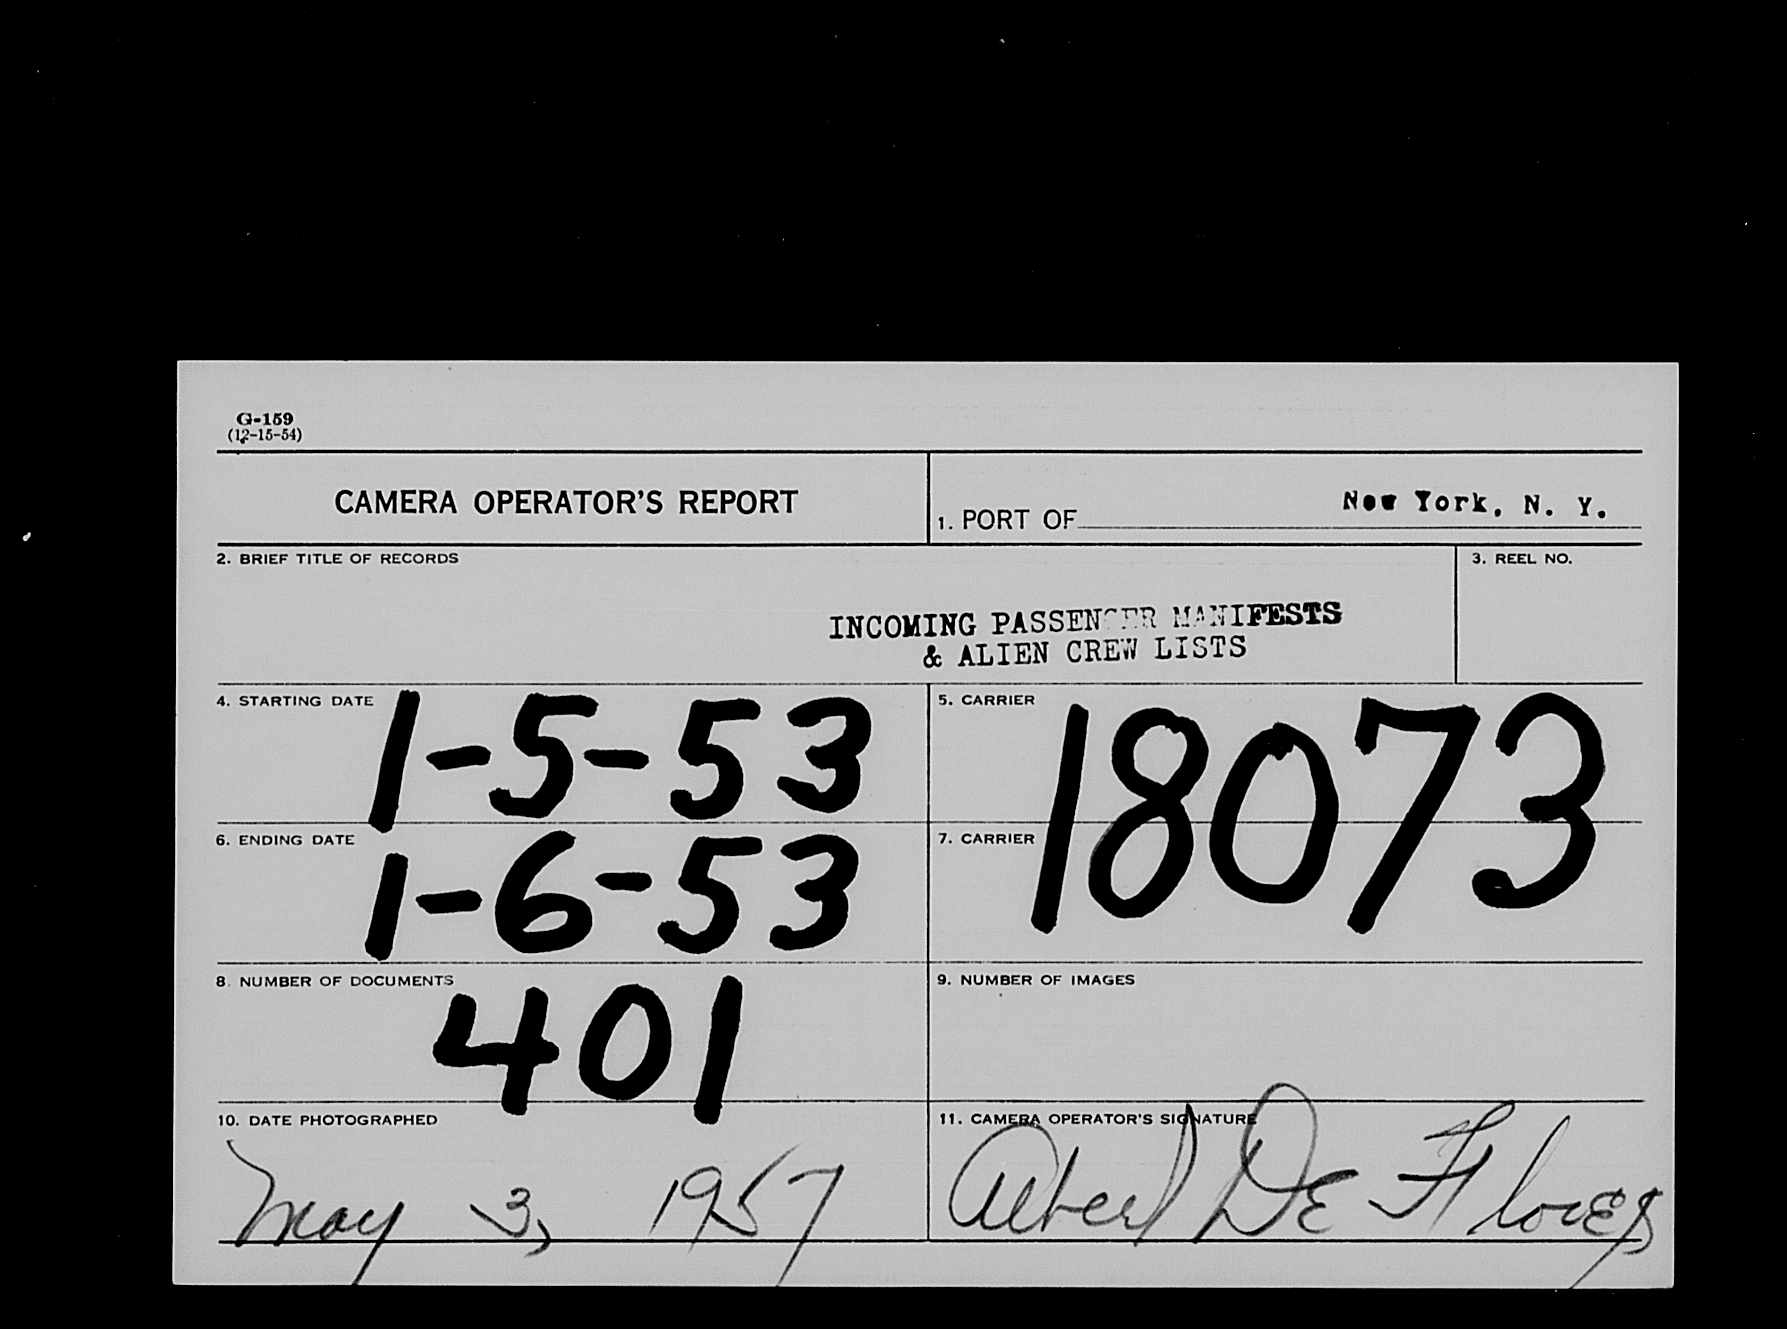 G-159
(12-15-54)
CAMERA OPERATOR'S REPORT
1. PORT OF New York, N. Y.
2. BRIEF TITLE OF RECORDS
3. REEL NO.
INCOMING PASSENGER MANIFESTS
& ALIEN CREW LISTS
4. STARTING DATE 1-5-53
5. CARRIER
18073
6. ENDING DATE 1-6-53
7. CARRIER
8. NUMBER OF DOCUMENTS 401
9. NUMBER OF IMAGES
10. DATE PHOTOGRAPHED
May 3, 1957
11. CAMERA OPERATOR'S SIGNATURE
Albert De Flores